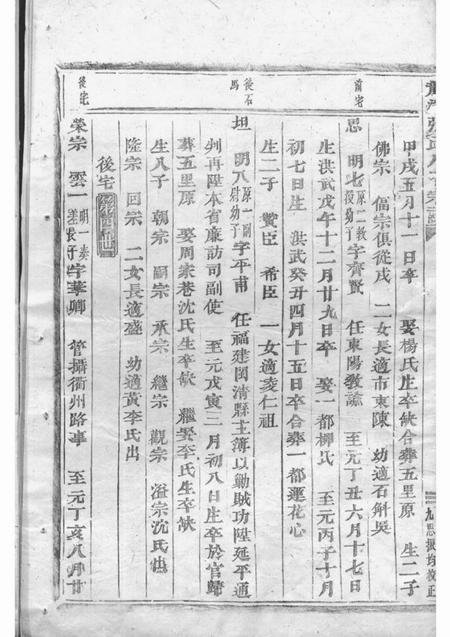 甲戌五月十一日卒 娶楊氏生卒缺合葬五里原 生二子
佛宗 儒宗俱從戎 二女長適市東陳 幼適石斛吳
前宅
思 明七原二教授幼子字齊賢 任東陽教諭 至元丁丑六月十七日
生洪武戊午十二月廿九日卒 娶一都柳氏 至元丙子十月
初七日生 洪武癸丑四月十五日卒合葬一都蓮花心
生二子 贊臣 希臣 一女適凌仁祖
後石馬
坦 明八原一尉幼子字平甫 任福建閩清縣主簿以勦賊功陞延平通
州再陞本省廉訪司副使 至元戊寅二月初八日生卒於官歸
葬五里原 娶周家巷沈氏生卒缺 繼娶李氏生卒缺
生八子 朝宗 嗣宗 承宗 繼宗 觀宗 溢宗沈氏出
隆宗 回宗 二女長適盛 幼適黃李氏出
後宅
後宅
榮宗 雲一明一奏差長子字華卿 管攝衢州路事 至元丁亥八月廿